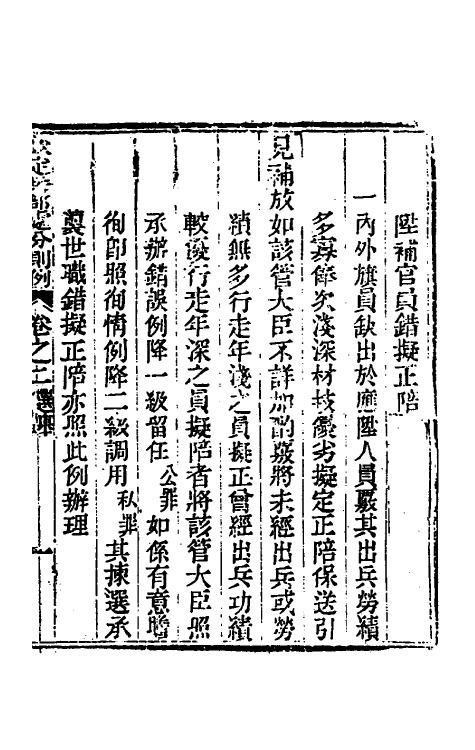 陞補官員錯擬正陪
一內外旗員缺出於應陞人員覈其出兵勞績
多寡俸次淺深材技優劣擬定正陪保送引
見補放如該管大臣不詳加酌覈將未經出兵或勞
績無多行走年淺之員擬正曾經出兵功績
較優行走年深之員擬陪者將該管大臣照
承辦錯誤例降一級留任公罪如係有意瞻
徇卽照徇情例降二級調用私罪其揀選承
襲世職錯擬正陪亦照此例辦理
欽定兵部處分則例 卷之二 選舉 一